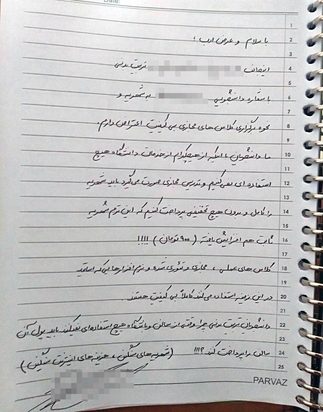 با سلام و عرض ادب!
اینجانب تربیت بدنی
با شماره دانشجویی به شهریه و
نحوه برگزاری کلاس های مجازی بی کیفیت اعتراض دارم.
ما دانشجویان با اینکه از هیچکدام از خدمات دانشگاه هیچ
استفاده ای نمی کنیم و تدریس مجازی صورت می گیرد باید شهریه
را کامل و بدون هیچ تخفیفی پرداخت کنیم که این ترم شهریه
ثابت هم افزایش یافته (۹۰۰ تومان) !!!!
کلاس های عملی، مجازی و تئوری شده و نرم افزارهایی که اساتید
در این زمینه استفاده می کنند کاملا بی کیفیت هستند
دانشجویان تربیت بدنی چرا وقتی از سالن ورزشگاه هیچ استفاده ای نمیکنند باید پول آن
سالن را پرداخت کند؟!!
(شهریه های سنگین و هزینه های اینترنت سنگین)
PARVAZ